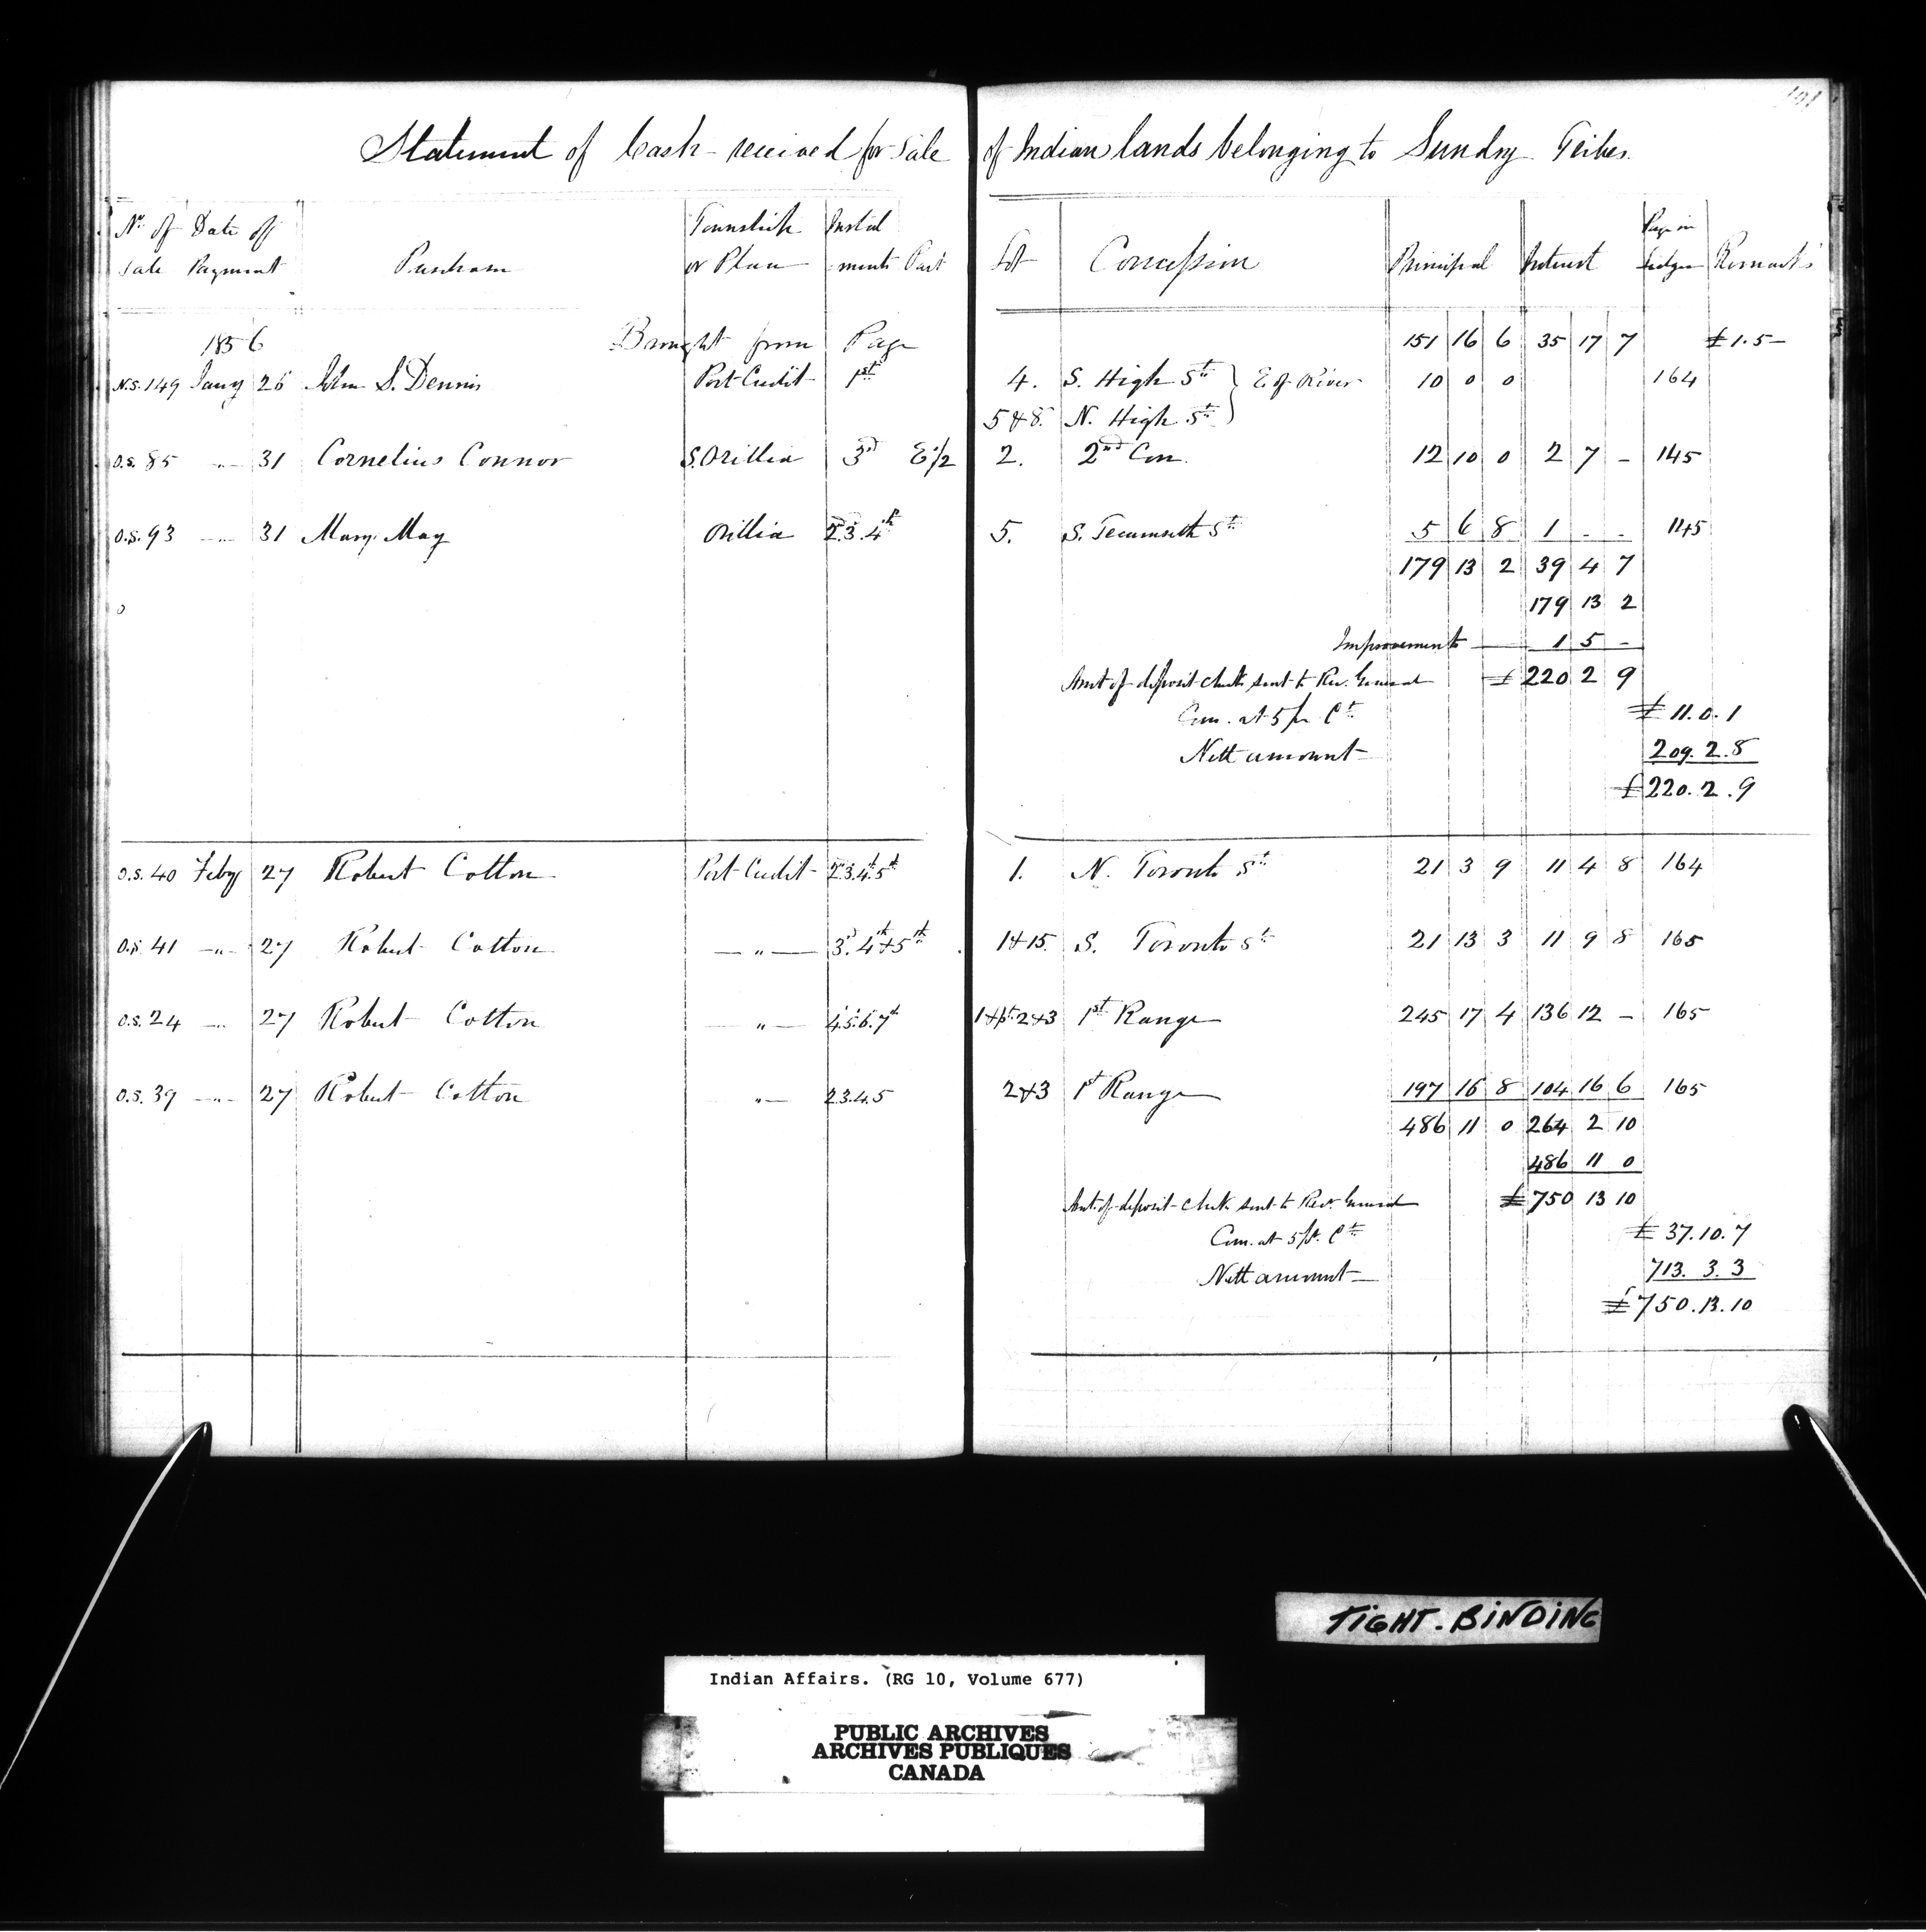 Statement of Cash received for Sale of Indian lands belonging to Sundry Tribes.
No. of Sale | Date of Payment | Purchaser | Township or Plan | Instalments | Part | Lot | Concession | Principal | Interest | Page in Ledger | Remarks
1856 Brought from Page 151 16 6 35 17 7 £1.5–
N.S. 149 Jany 26 John S. Dennis Port Credit 1st 4. S. High St } E of River 10 0 0 164
5 & 8. N. High St
O.S. 85 –"– 31 Cornelius Connor S. Orillia 3rd E½ 2. 2nd Con. 12 10 0 2 7 – 145
O.S. 93 –"– 31 Mary May Orillia 2.3.4th 5. S. Tecumseth St 5 6 8 1 - - 145
179 13 2 39 4 7
179 13 2
Improvements 1 5 –
Amt of deposit check sent to Rec. General £ 220 2 9
Com. at 5 pr Ct £ 11.0.1
Nett amount 209.2.8
£220.2.9
O.S. 40 Feby 27 Robert Cotton Port Credit 2.3.4.5th 1. N. Toronto St 21 3 9 11 4 8 164
O.S. 41 –"– 27 Robert Cotton –"– 3d. 4th & 5th 1 & 15. S. Toronto St 21 13 3 11 9 8 165
O.S. 24 –"– 27 Robert Cotton –"– 4.5.6.7th 1 & pt 2 & 3 1st Range 245 17 4 136 12 – 165
O.S. 39 –"– 27 Robert Cotton –"– 2.3.4.5 2 & 3 1st Range 197 16 8 104 16 6 165
486 11 0 264 2 10
486 11 0
Amt of deposit check sent to Rec. General £ 750 13 10
Com. at 5 pr. Ct £ 37.10.7
Nett amount 713.3.3
£750.13.10
TIGHT. BINDING
Indian Affairs. (RG 10, Volume 677)
PUBLIC ARCHIVES
ARCHIVES PUBLIQUES
CANADA